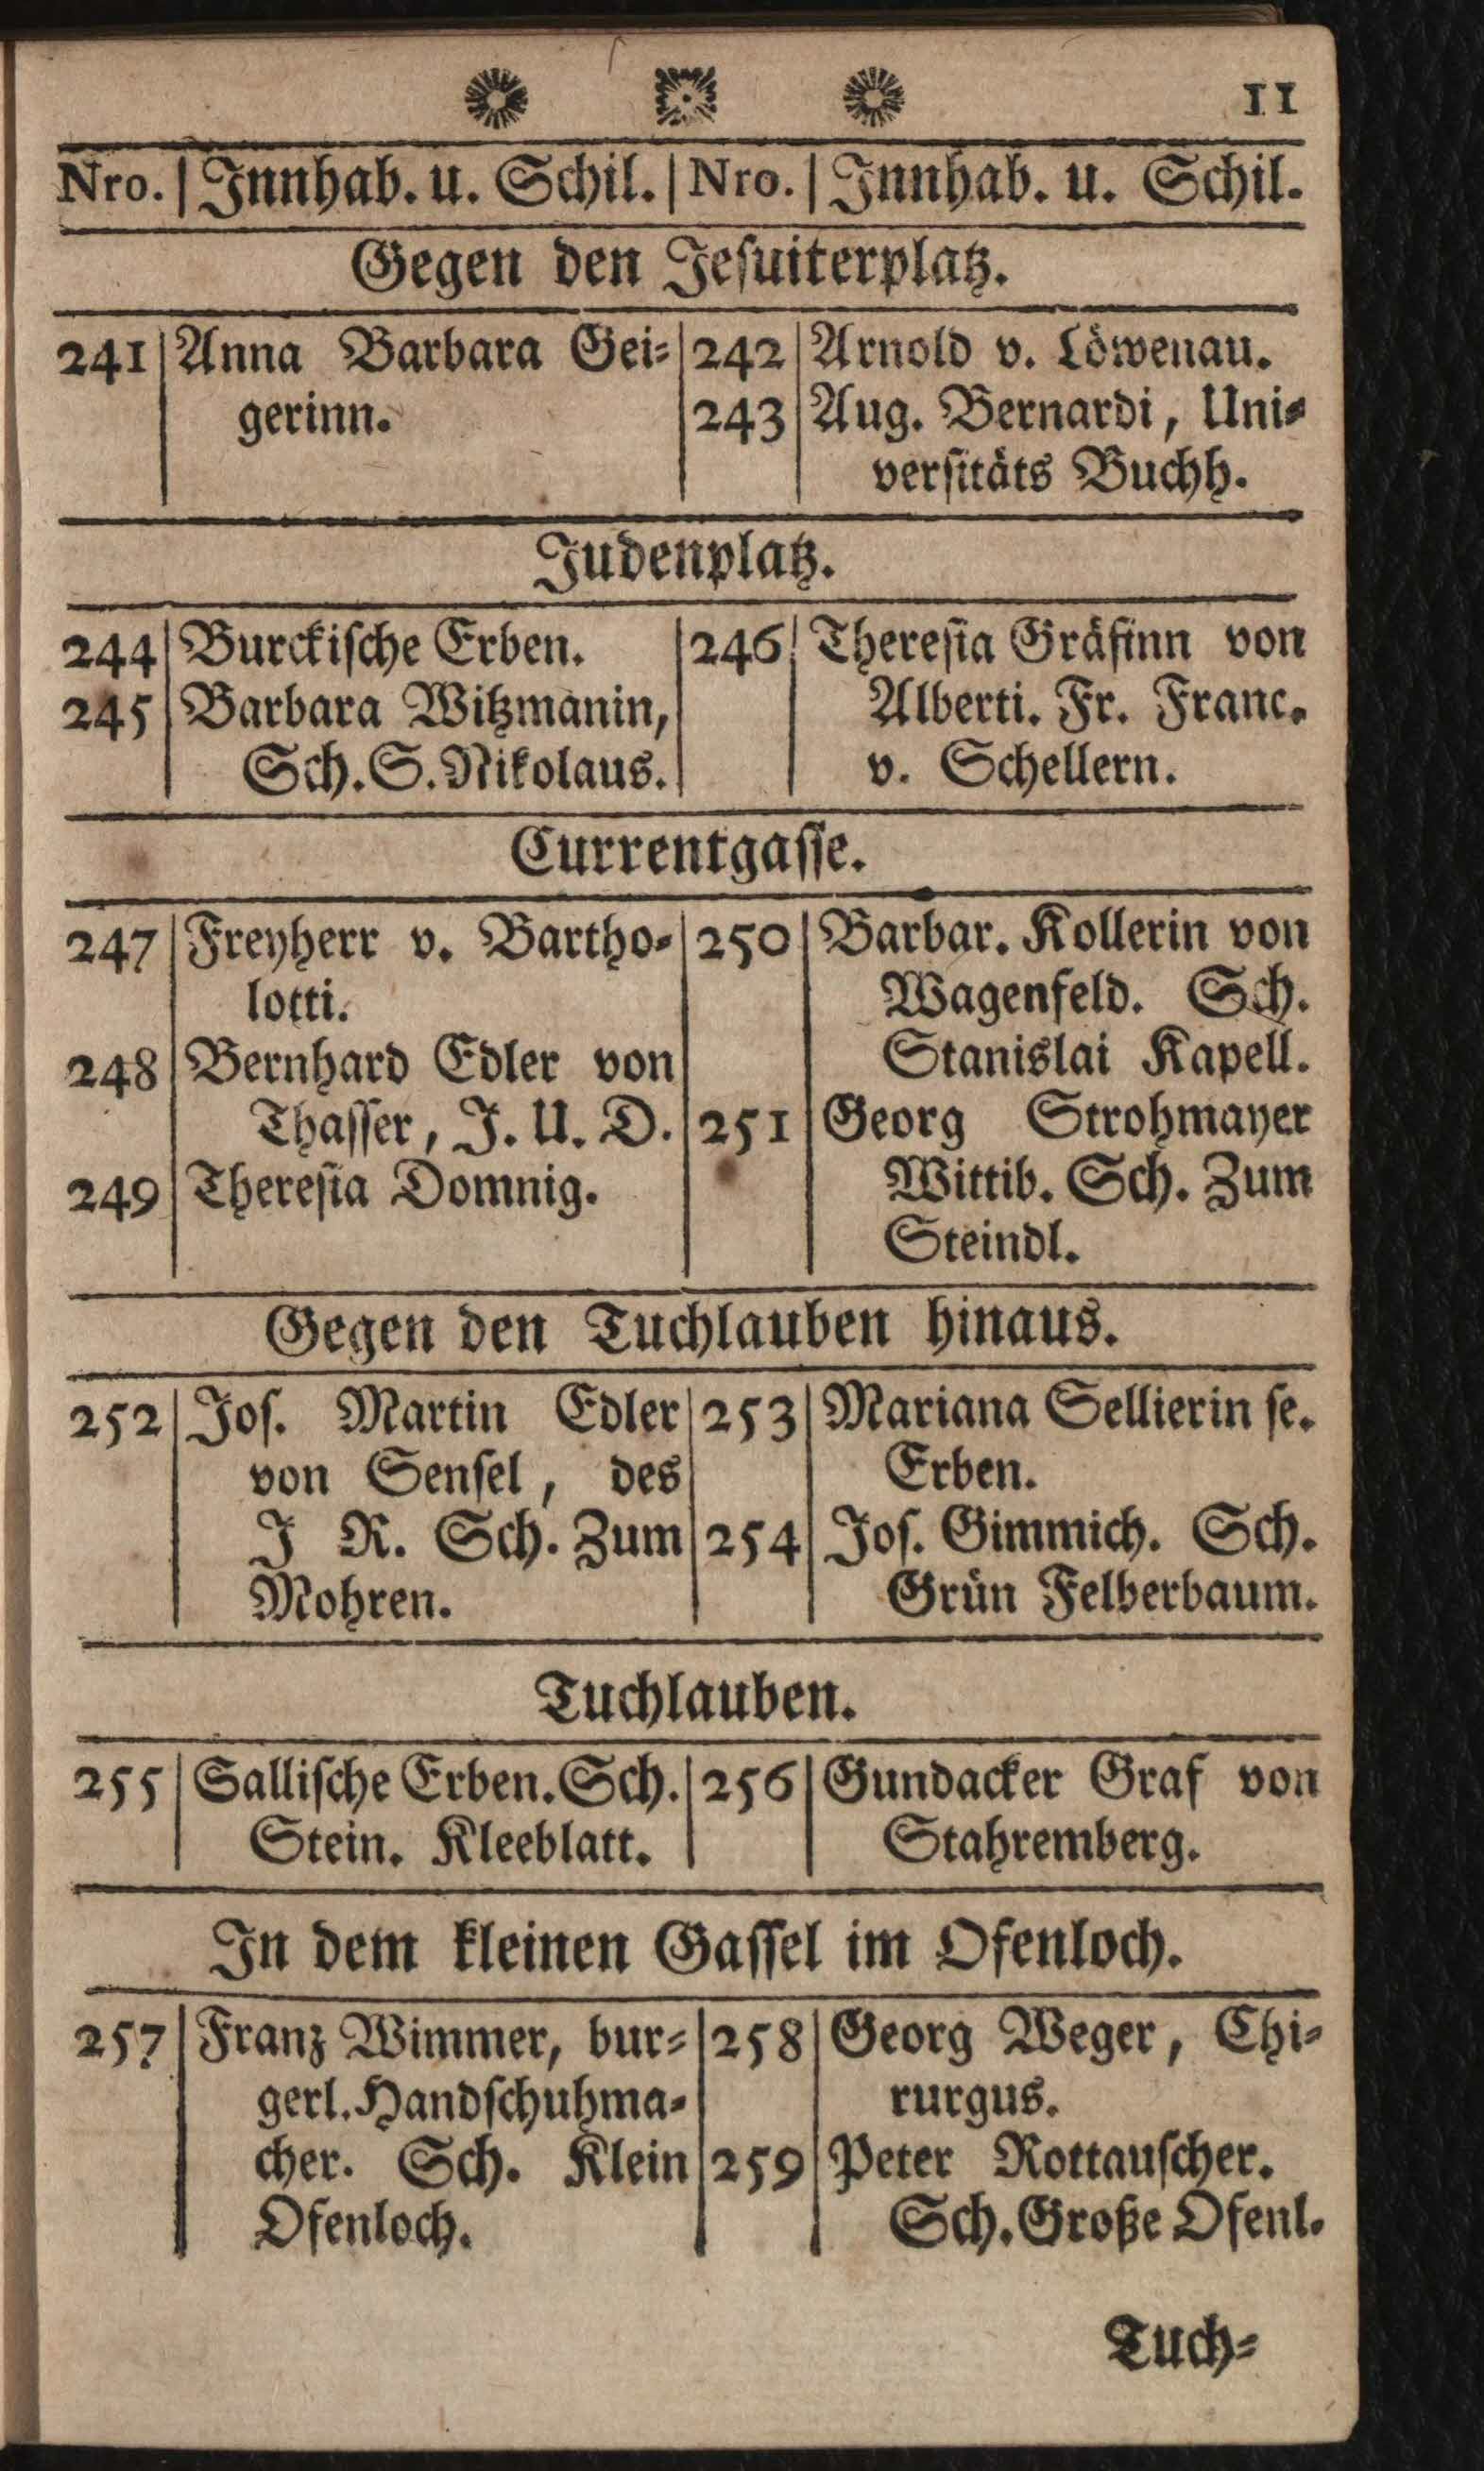 11
Nro. | Innhab. u. Schil. | Nro. | Innhab. u. Schil.
Gegen den Jesuiterplatz.
241 Anna Barbara Gei-
gerinn.
242 Arnold v. Löwenau.
243 Aug. Bernardi, Uni-
versitäts Buchh.
Judenplatz.
244 Burckische Erben.
245 Barbara Witzmanin,
Sch. S. Nikolaus.
246 Theresia Gräfinn von
Alberti. Fr. Franc.
v. Schellern.
Currentgasse.
247 Freyherr v. Bartho-
lotti.
248 Bernhard Edler von
Thasser, J. U. D.
249 Theresia Domnig.
250 Barbar. Kollerin von
Wagenfeld. Sch.
Stanislai Kapell.
251 Georg Strohmayer
Wittib. Sch. Zum
Steindl.
Gegen den Tuchlauben hinaus.
252 Jos. Martin Edler
von Sensel, des
J R. Sch. Zum
Mohren.
253 Mariana Sellierin se.
Erben.
254 Jos. Gimmich. Sch.
Grün Felberbaum.
Tuchlauben.
255 Sallische Erben. Sch.
Stein. Kleeblatt.
256 Gundacker Graf von
Stahremberg.
In dem kleinen Gassel im Ofenloch.
257 Franz Wimmer, bur-
gerl. Handschuhma-
cher. Sch. Klein
Ofenloch.
258 Georg Weger, Chi-
rurgus.
259 Peter Rottauscher.
Sch. Große Ofenl.
Tuch-